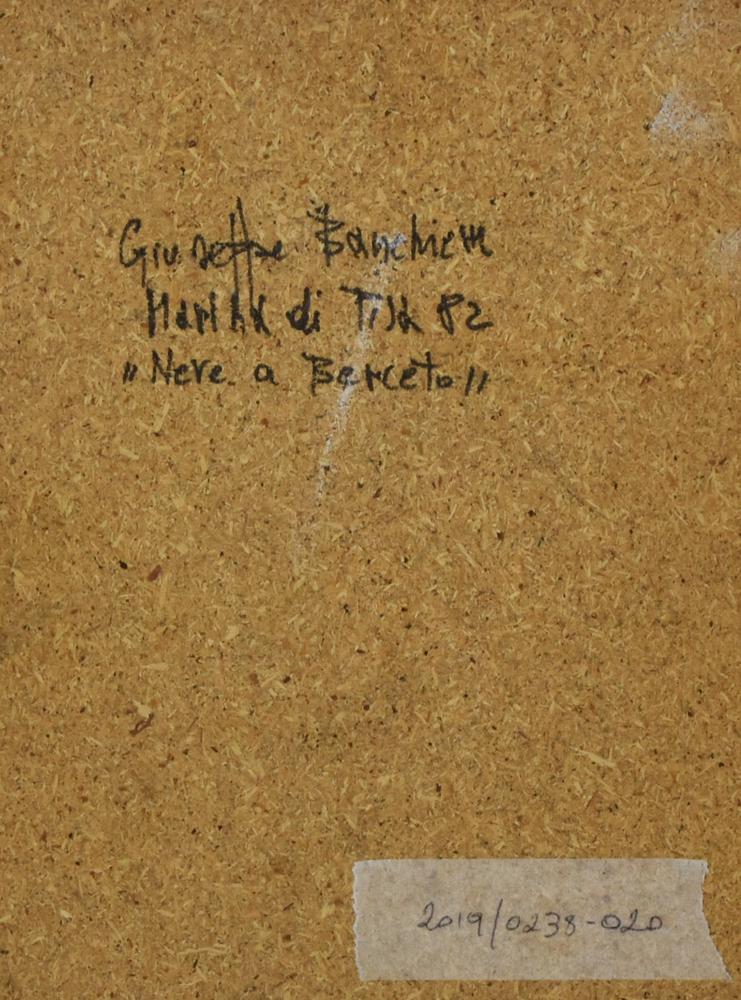 Giuseppe Banchieri
Marina di Pisa 82
"Neve a Berceto"
2019/0238-020